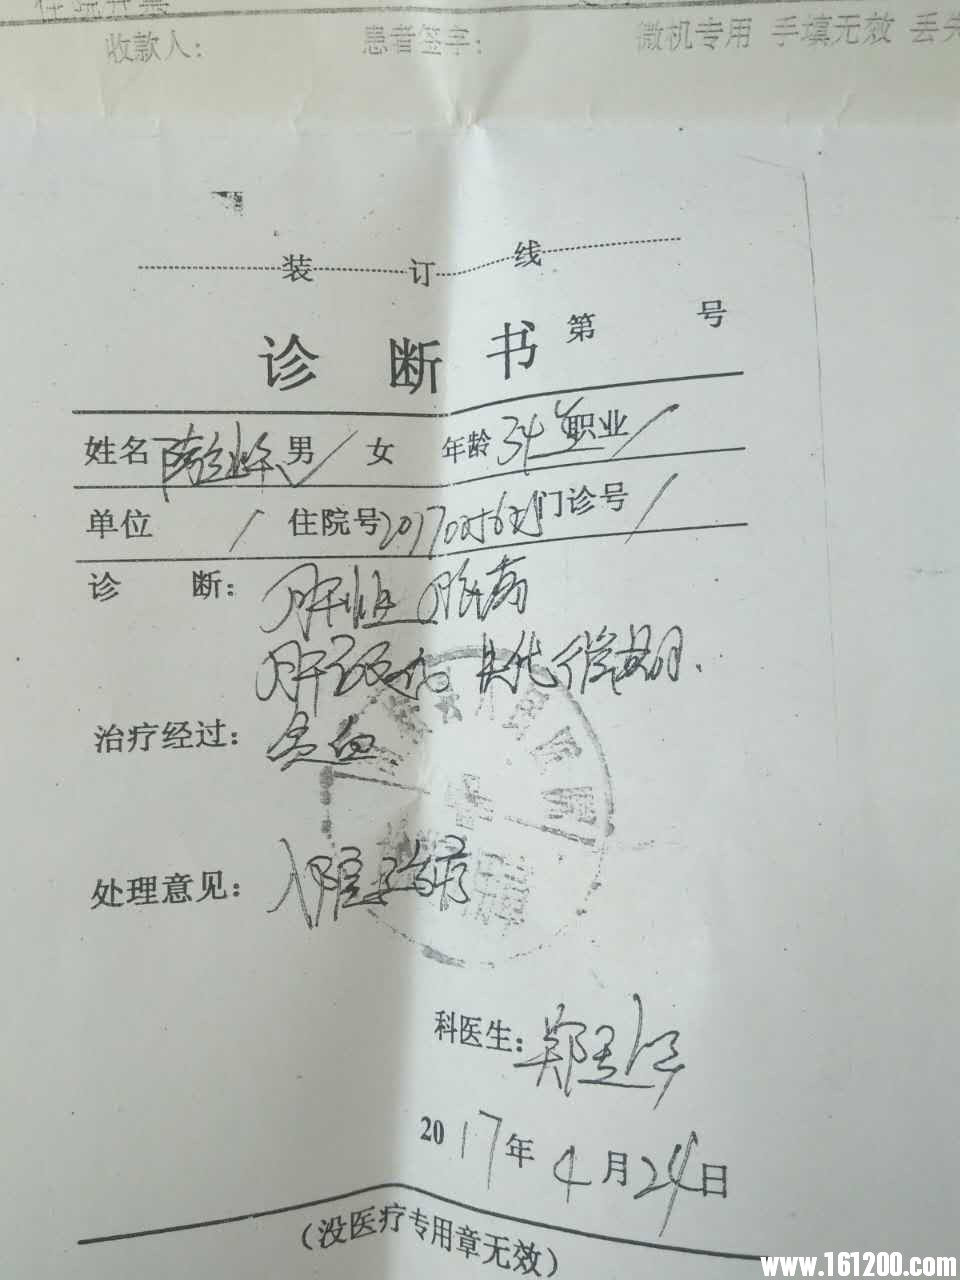 收款人: 患者签字: 微机专用 手填无效 丢失
装 订 线
诊断书 第 号
姓名 男 女 年龄 34岁 职业
单位 / 住院号 门诊号 /
诊 断: 肝性脑病
肝硬化 失代偿期.
治疗经过: 贫血
处理意见: 入院治疗
科医生:
2017年4月24日
(没医疗专用章无效)
www.161200.com